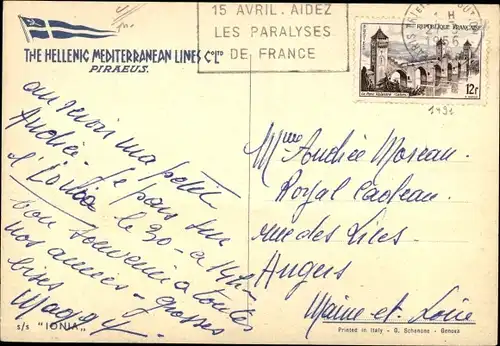 15 AVRIL. AIDEZ
LES PARALYSES
DE FRANCE
THE HELLENIC MEDITERRANEAN LINES Co LTD
PIRAEUS.
REPUBLIQUE FRANÇAISE
Le Pont Valentré Cahors
12F
1491
au revoir ma petite
Andrée. Je pars sur
l'Ionia le 30 - à 14h
bon souvenir à toutes
nos amies - grosses
bises
Maggy
Mme Andrée Moreau.
Royal Cadeau.
rue des Lices.
Angers
Maine-et-Loire
s/s "IONIA"
Printed in Italy - G. Schenone - Genova